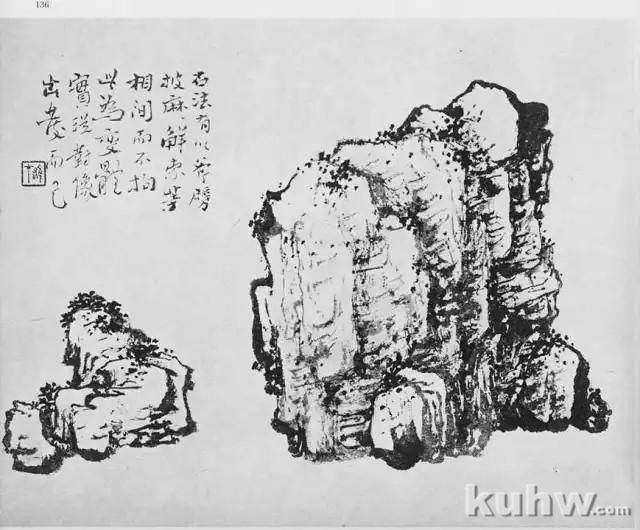 136
石法有以斧劈
披麻、解索等
相间而不拘
此為變體
實從對像
出發而已
kuhw.com